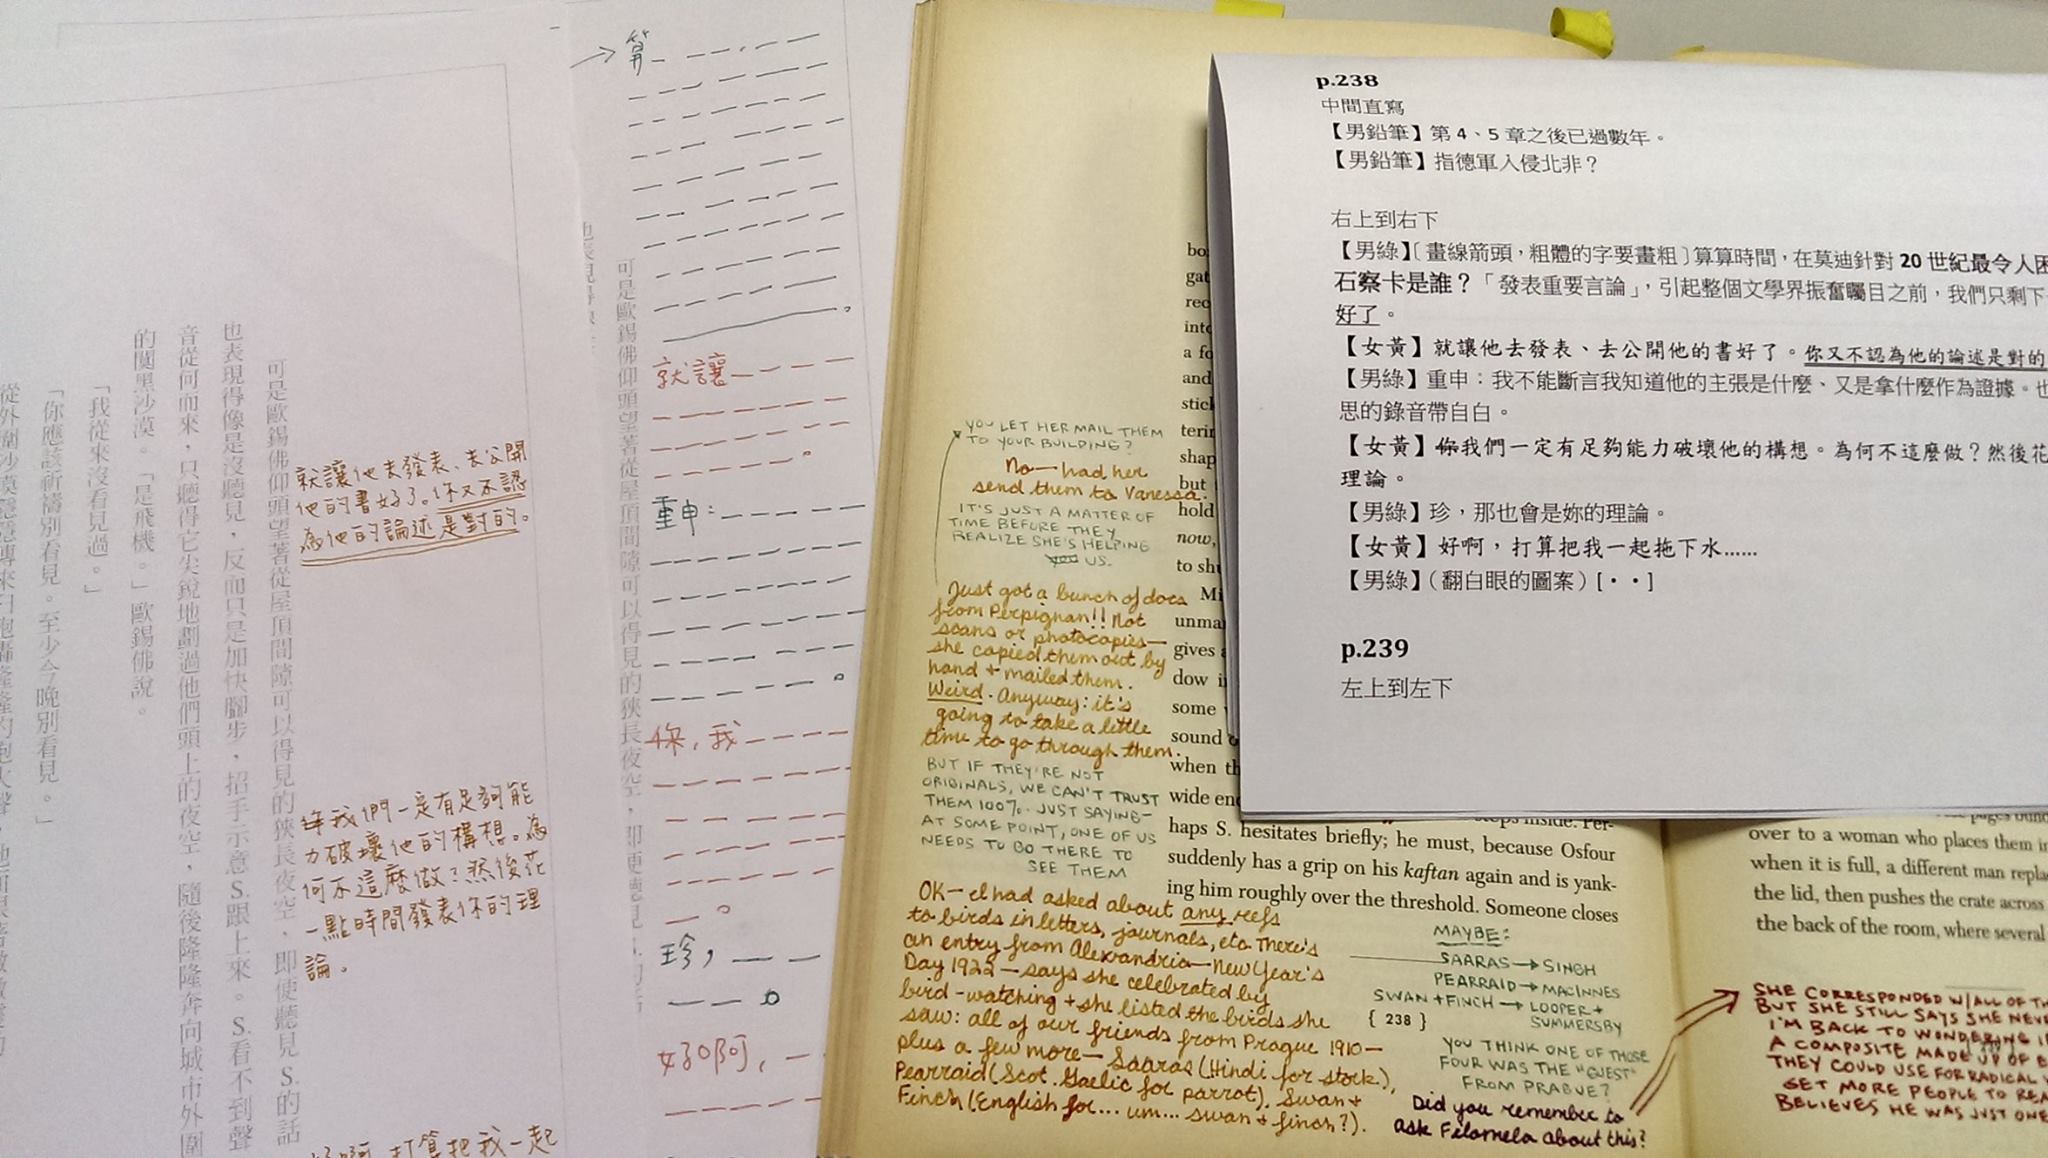 可是歐錫佛仰頭望著從屋頂間隙可以得見的狹長夜空，即使聽見 S. 的話
也表現得像是沒聽見，反而只是加快腳步，招手示意 S. 跟上來。S. 看不到聲
音從何而來，只聽得它尖銳地劃過他們頭上的夜空，隨後隆隆奔向城市外圍
的闃黑沙漠。「是飛機。」歐錫佛說。
「我從來沒看見過。」
「你應該祈禱別看見。至少今晚別看見。」
就讓他去發表、去公開
他的書好了。你又不認
為他的論述是對的。
我們一定有足夠能
力破壞他的構想。為
何不這麼做？然後花
一點時間發表你的理
論。
好啊，打算把我一起
→算
就讓
重申：
你，我
珍，
好啊，
可是歐錫佛仰頭望著從屋頂間隙可以得見的狹長夜空，即便聽見
YOU LET HER MAIL THEM
TO YOUR BUILDING?
No—had her
send them to Vanessa.
IT'S JUST A MATTER OF
TIME BEFORE THEY
REALIZE SHE'S HELPING
US.
Just got a bunch of docs
from Perpignan!! Not
scans or photocopies—
she copied them out by
hand + mailed them.
Weird. Anyway: it's
going to take a little
time to go through them.
BUT IF THEY'RE NOT
ORIGINALS, WE CAN'T TRUST
THEM 100%. JUST SAYING—
AT SOME POINT, ONE OF US
NEEDS TO GO THERE TO
SEE THEM
OK—I had asked about any refs
to birds in letters, journals, etc. There's
an entry from Alexandria—New Year's
Day 1922—says she celebrated by
bird-watching + she listed the birds she
saw: all of our friends from Prague 1910—
plus a few more—Saaras (Hindi for stork),
Pearraid (Scot. Gaelic for parrot), Swan +
Finch (English for... um... swan + finch?).
hold
now,
to shu
unma
gives a
dow i
some
sound
when th
wide en
steps inside. Per-
haps S. hesitates briefly; he must, because Osfour
suddenly has a grip on his kaftan again and is yank-
ing him roughly over the threshold. Someone closes
MAYBE:
SAARAS → SINGH
PEARRAID → MACINNES
SWAN + FINCH → LOOPER +
SUMMERSBY
{ 238 }
YOU THINK ONE OF THOSE
FOUR WAS THE "GUEST"
FROM PRAGUE?
Did you remember to
ask Filomela about this?
p.238
中間直寫
【男鉛筆】第 4、5 章之後已過數年。
【男鉛筆】指德軍入侵北非？
右上到右下
【男綠】〔畫線箭頭，粗體的字要畫粗〕算算時間，在莫迪針對 20 世紀最令人困
石察卡是誰？「發表重要言論」，引起整個文學界振奮矚目之前，我們只剩下
好了。
【女黃】就讓他去發表、去公開他的書好了。你又不認為他的論述是對的
【男綠】重申：我不能斷言我知道他的主張是什麼、又是拿什麼作為證據。也
思的錄音帶自白。
【女黃】你我們一定有足夠能力破壞他的構想。為何不這麼做？然後花
理論。
【男綠】珍，那也會是妳的理論。
【女黃】好啊，打算把我一起拖下水……
【男綠】（翻白眼的圖案）[‧‧]
p.239
左上到左下
over to a woman who places them in
when it is full, a different man repla
the lid, then pushes the crate across
the back of the room, where several
SHE CORRESPONDED W/ALL OF TH
BUT SHE STILL SAYS SHE NEVE
I'M BACK TO WONDERING I
A COMPOSITE MADE UP OF
THEY COULD USE FOR RADICAL
GET MORE PEOPLE TO REA
BELIEVES HE WAS JUST ONE